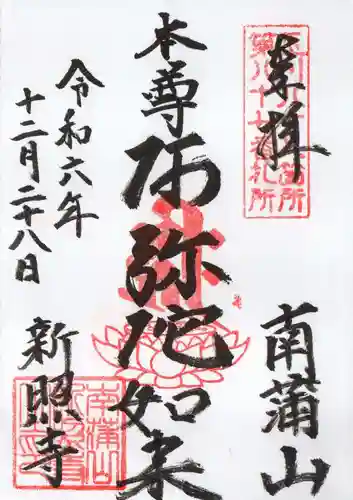 奉拝
第八十七番札所
南蒲山
本尊
阿弥陀如来
令和六年
十二月二十八日
新照寺